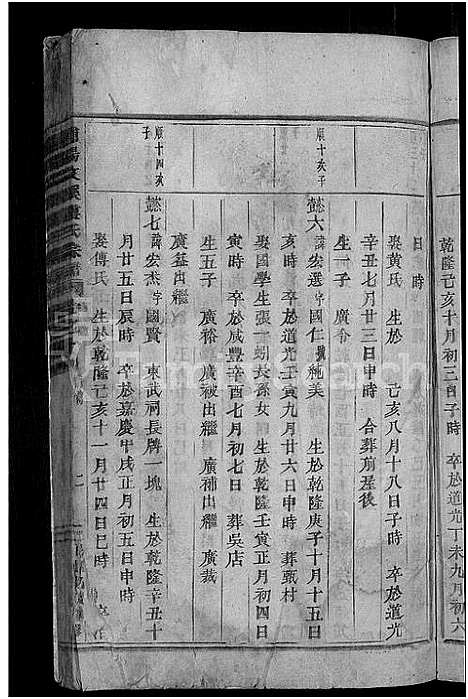 乾隆己亥十月初三日子時 卒於道光丁未九月初六
日 時
娶黃氏 生於 己亥八月十八日子時 卒於道光
辛丑七月廿三日申時 合葬前屋後
生一子 廣
順十亥子
懿六 諱宏選 字國仁 號純美 生於乾隆庚子十月十五日
亥時 卒於道光壬寅九月廿六日申時 葬甄村
娶國學生張一 長孫女 生於乾隆壬寅正月初四日
寅時 卒於咸豐辛酉七月初七日 葬吳店
生五子 廣裕 廣 廣被出繼 廣補出繼 廣裁
廣 出繼
順十四亥子
懿七 諱宏杰 字國賢 東武祠長牌一塊 生於乾隆辛丑十
月廿五日辰時 卒於嘉慶甲戌正月初五日申時
娶傅氏 生於乾隆己亥十一月廿四日巳時
氏宗譜